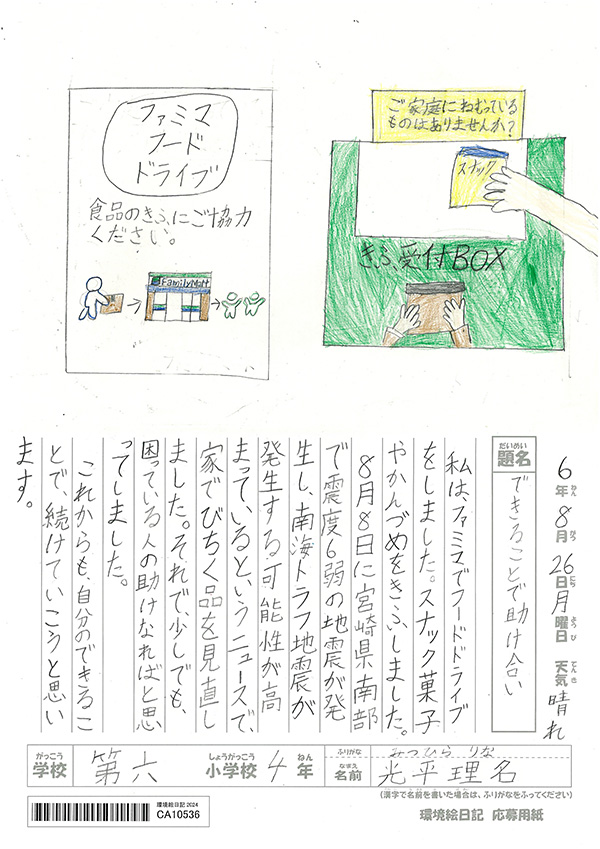 ファミマ
フード
ドライブ
食品のきふにご協力
ください。
FamilyMart
ご家庭にねむっている
ものはありませんか?
スナック
きふ受付BOX
6年8月26日月曜日 天気 晴れ
ねん がつ にち ようび てんき
だいめい
題名 できることで助け合い
私は、ファミマでフードドライブ
をしました。スナック菓子
やかんづめをきふしました。
8月8日に宮崎県南部
で震度6弱の地震が発
生し、南海トラフ地震が
発生する可能性が高
まっているというニュースで、
家でびちく品を見直し
ました。それで、少しでも、
困っている人の助けなればと思
ってしました。
これからも、自分のできるこ
とで、続けていこうと思い
ます。
がっこう しょうがっこう ねん ふりがな みつひら りな
学校 第六 小学校 4年 なまえ 名前 光平理名
(漢字で名前を書いた場合は、ふりがなをふってください)
環境絵日記2024
CA10536
環境絵日記 応募用紙